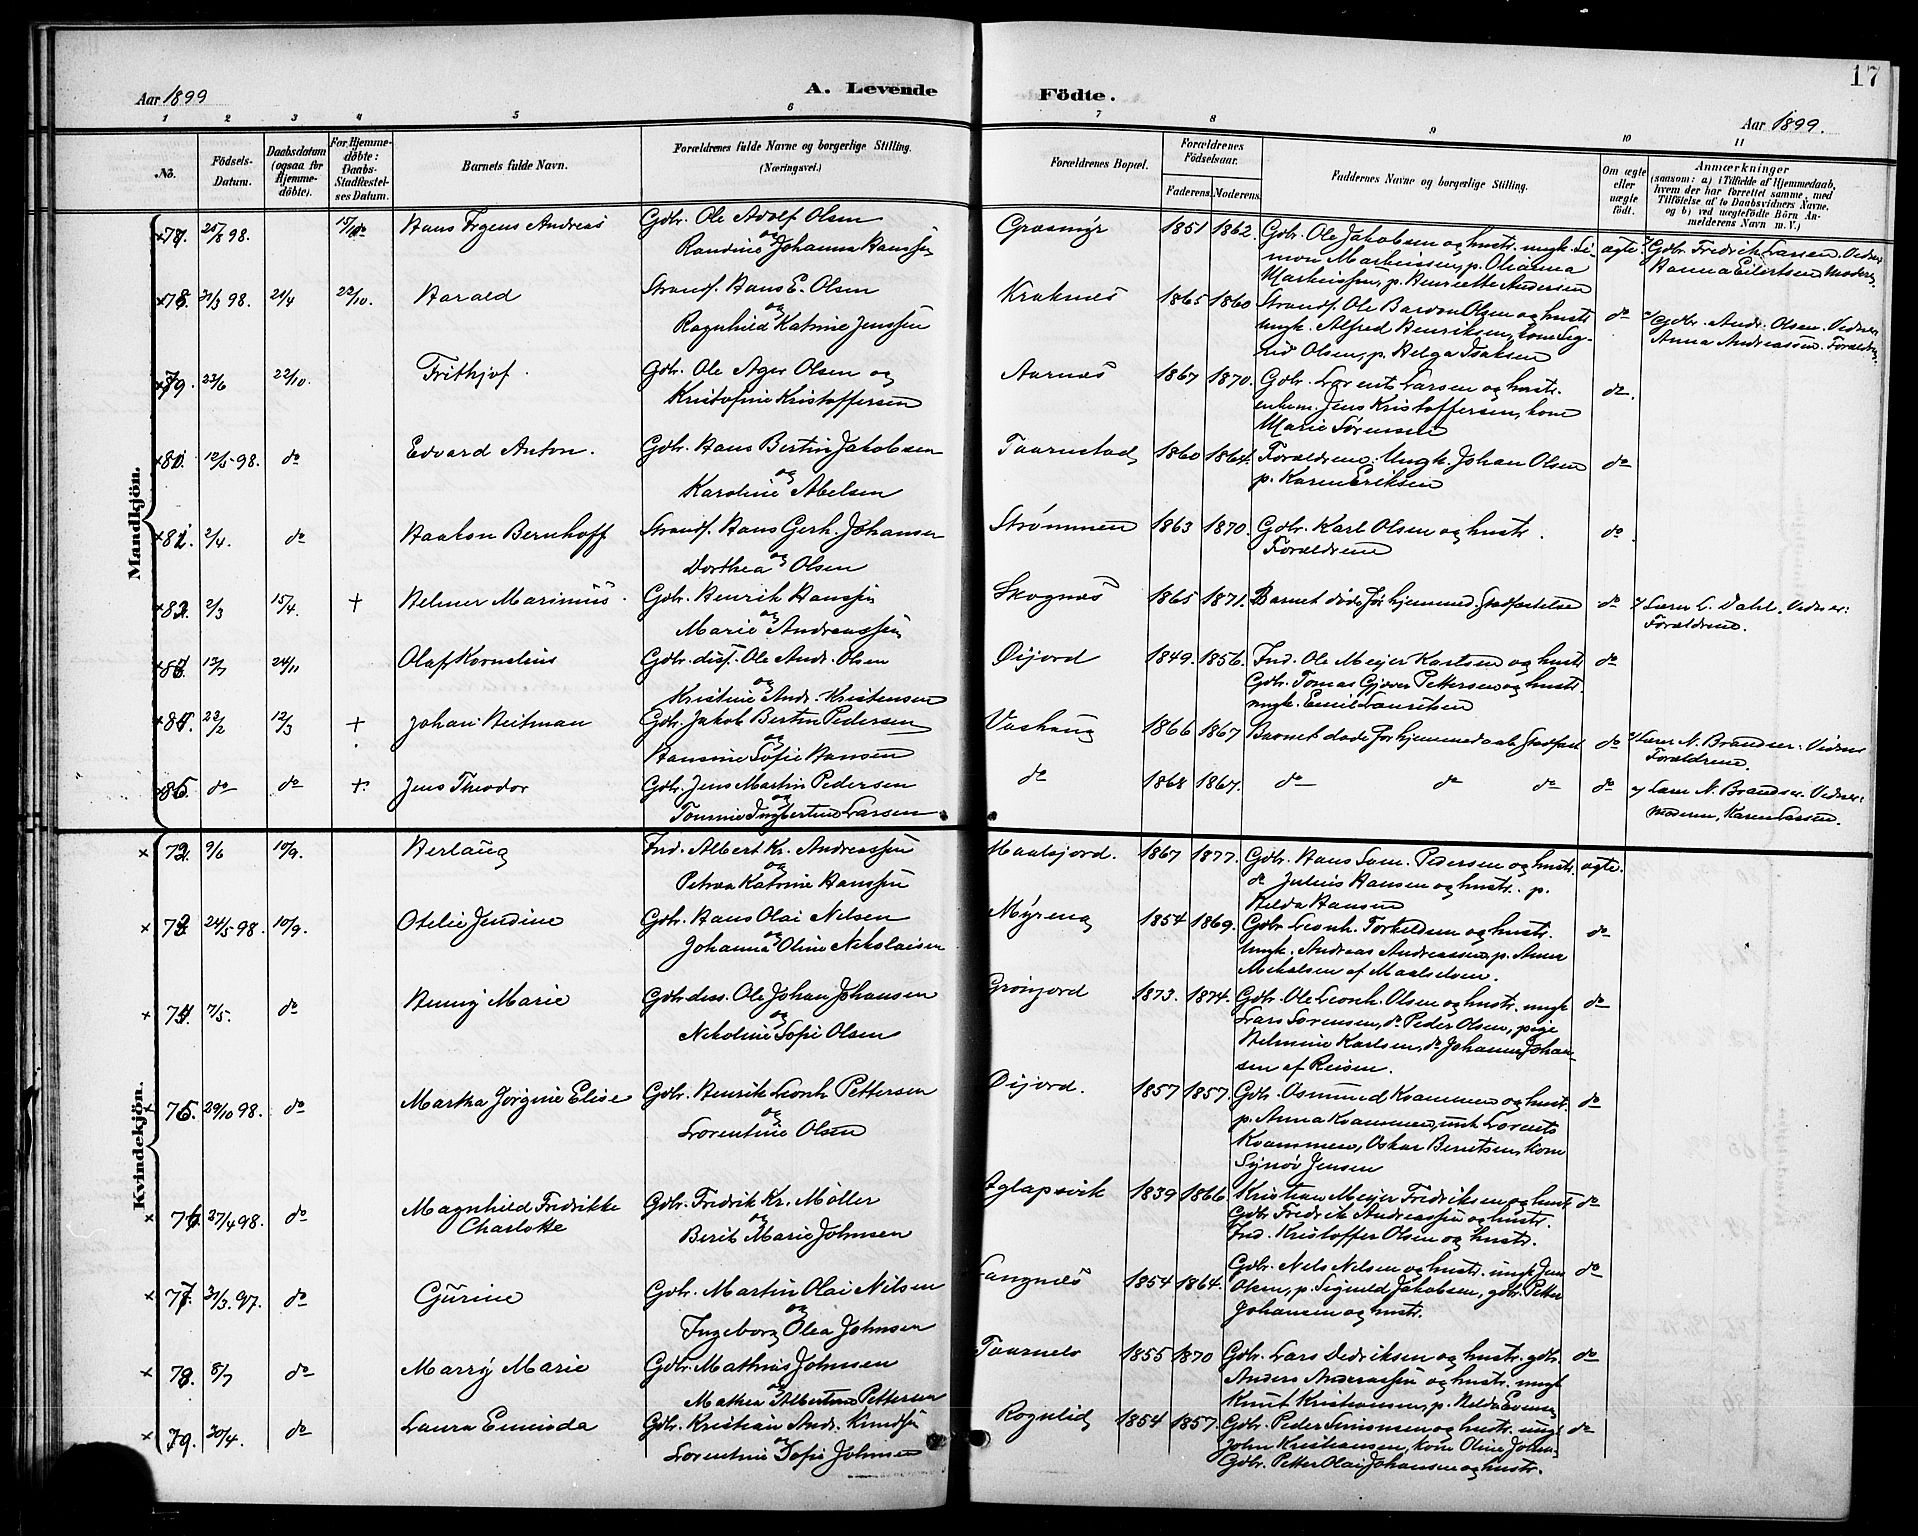 17
Aar 1899
A. Levende
Födte.
Aar 1899.
1 2 3 4 5 6 7 8 9 10 11
No.
Födsels-Datum.
Daabsdatum (ogsaa for Hjemme-döbte).
For Hjemme-döbte: Daabs-Stadfæstel-ses Datum.
Barnets fulde Navn.
Forældrenes fulde Navne og borgerlige Stilling.
(Næringsvei.)
Forældrenes Bopæl.
Forældrenes Födselsaar.
Faderens. Moderens.
Faddernes Navne og borgerlige Stilling.
Om ægte eller uægte født.
Anmærkninger
(saasom: a) i Tilfælde af Hjemmedaab,
hvem der har forrettet samme, med
Tilföielse af to Daabsvidners Navne.
og b) ved uægtefödte Börn An-
melderens Navn m. V.)
Mandkjön.
25/8 98. Hans Andreas Gdbr. Ole Adolf Olsen
og Johanna Græsmyr 1851 1862. Gdbr. Ole Jakobsen og hustr. ungk. Si-
mon Martinussen, p. Olianna
p. Henriette Andersen
ægte. Gdbr. Fredrik Larsen. Vidner
Hanna Eilertsen
78. 31/3 98. 21/4 22/10. Harald Strands. Hans E. Olsen
og
Ragnhild Katrine Jenssen
Kraknes 1865 1860 Strands. Ole Bardon Olsen og hustr
ungk. Alfred Henriksen, kone Sig-
rid Olsen, p. Helga Isaksen
do Gdbr. Andr. Olsen. Vidner
Anna Andreassen. Forældre
79. 23/6 22/10. Frithjof. Gdbr. Ole Ager Olsen og
Kristofine Kristoffersen
Aarnæs 1867 1870. Gdbr. Lorents Larsen og hustr.
enkem. Jens Kristoffersen, kone
Marie Sørensen
do.
12/5 98. do Edvard Anton. Gdbr. Hans Bertin Jakobsen
og
Karoline Abelsen
Taarnstad 1860 1864. Forældrene. Ungk. Johan Olsen
p. Karen Eriksen
do
2/4. do Haakon Bernhoff Strands. Hans Gerh. Johansen
og
Dorthea Olsen
Strømmen 1863 1870. Gdbr. Karl Olsen og hustr.
Forældrene
do.
82. 2/3 15/4. + Helmer Marinius. Gdbr. Henrik Hanssen
og
Marie Andreassen
Skognæs 1865 1871. Barnet døde før hjemmed. Stadfæstelse do Lærer L. Dahl. Vidner:
Forældrene.
13/7 24/11 Olaf Kornelius Gdbr. diss. Ole Andr. Olsen
og
Kristine Andr. Kristensen
Øijord 1849. 1856. Ind. Ole Meyer Karlsen og hustr
Gdbr. Tomas Gjæver Pettersen og hustr.
ungk. Emil Lauritsen
do
22/2 12/3 + Johan Heitman Gdbr. Jakob Bertin Pedersen
og
Hansine Sofie Hansen
Vashaug 1866 1867 Barnet døde før hjemmedaab Stadfæst do Lærer N. Brandser. Vidner
Forældrene.
85. do do + Jens Theodor Gdbr. Jens Martin Pedersen
og
Larsen
do 1868 1867. do do do do Lærer N. Brandser. Vidner:
Moderen, Karen Larsen.
Kvindekjön.
72. 9/6 10/9. Herlaug Ind. Albert Kr. Andreassen
og
Petra Katrine Hanssen
Maalsjord. 1867 1877. Gdbr. Hans Sam. Pedersen og hustr.
do Julius Hansen og hustr. p.
Hilda Hansen
ægte.
73. 24/5 98. 10/9. Otelie Jendine Gdbr. Hans Olai Nilsen
og
Johanna Oline Nikolaisen
Myreng 1854 1869. Gdbr. Leonh. Torkildsen og hustr.
Ungk. Andreas Andreassen, p. Anna
Mikalsen af Maalselven.
do
74. 7/5. do Henny Marie Gdbr. diss. Ole Johan Johansen
og
Nikoline Sofie Olsen
Grønjord 1873. 1874. Gdbr. Ole Leonh. Olsen og hustr. ungk
Lars Sørensen, do Peder Olsen, pige
Helmine Karlsen, do Johanne Johan-
sen af Reisen.
do
75. 29/10 98. do Martha Jørgine Elise Gdbr. Henrik Leonh. Pettersen
og
Lorentine Olsen
Øijord. 1857 1857. Gdbr. Osmund Kvammen og hustr.
p. Anna Kvammen, ungk Lorents
Kvammen, Oskar Berntsen, kone
Synøv Jensen
do
76. 27/4 98. do Magnhild Fredrikke
Charlotte
Gdbr. Fredrik Kr. Møller
og
Berit Marie Johnsen
Aglapsvik 1839 1866. Kristian Meyer Fredriksen og hustr
Gdbr Fredrik Andreassen og hustr.
Ind. Kristoffer Olsen og hustr.
do
77. 31/3. 97. do Gurine Gdbr. Martin Olai Nilsen
og
Ingeborg Olea Johnsen
Langnæs 1854 1864. Gdbr. Nils Nilsen og hustr. ungk Jens
Olsen, p. Sigrid Jakobsen, gdbr. Petter
Johansen og hustr.
do
78. 8/7 do Marry Marie Gdbr. Mathias Johnsen
og
Mathea Albertine Pettersen
Taarnelv 1855 1870 Gdbr. Lars Didriksen og hustr. gdbr.
Anders Andreassen og hustr. ungk
Knut Kristiansen, p. Hilda Evensen
do
79. 30/4. do Laura Eminda Gdbr. Kristian Andr. Knudsen
og
Lorentine Sofie Johnsen
Rognlid 1854 1857. Gdbr. Peder Simonsen og hustr. ungk
John Kristiansen, kone Oline Johns.
Gdbr. Petter Olai Johansen og hustr.
do